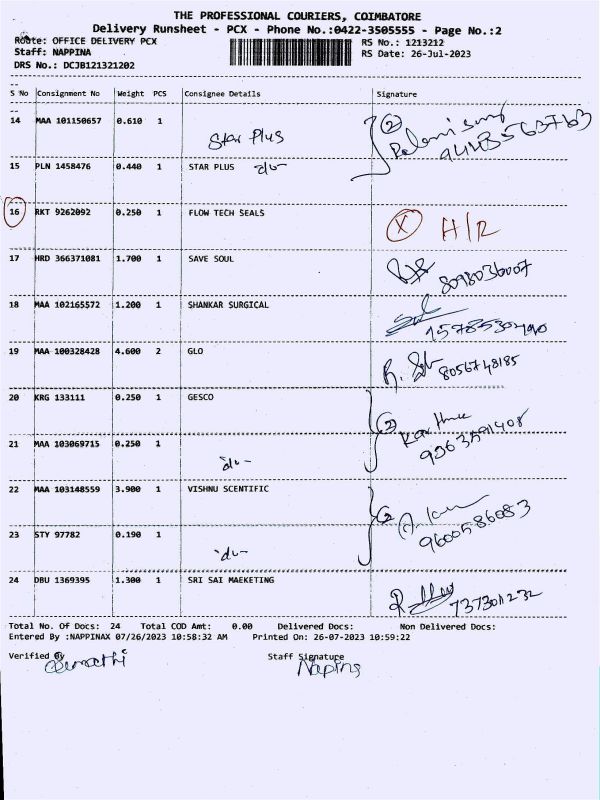 THE PROFESSIONAL COURIERS, COIMBATORE
Delivery Runsheet - PCX - Phone No.:0422-3505555 - Page No.:2
Route: OFFICE DELIVERY PCX RS No.: 1213212
Staff: NAPPINA RS Date: 26-Jul-2023
DRS No.: DCJB121321202
S No Consignment No Weight PCS Consignee Details Signature
14 MAA 101150657 0.610 1 Star Plus 2
15 PLN 1458476 0.440 1 STAR PLUS
16 RKT 9262092 0.250 1 FLOW TECH SEALS X H/R
17 HRD 366371081 1.700 1 SAVE SOUL 8098036007
18 MAA 102165572 1.200 1 SHANKAR SURGICAL
19 MAA 100328428 4.600 2 GLO 8056748185
20 KRG 133111 0.250 1 GESCO
21 MAA 103069715 0.250 1 9363591408
22 MAA 103148559 3.900 1 VISHNU SCENTIFIC
23 STY 97782 0.190 1 9600586083
24 DBU 1369395 1.300 1 SRI SAI MAEKETING
Total No. Of Docs: 24 Total COD Amt: 0.00 Delivered Docs: Non Delivered Docs:
Entered By :NAPPINAX 07/26/2023 10:58:32 AM Printed On: 26-07-2023 10:59:22
Verified By Staff Signature